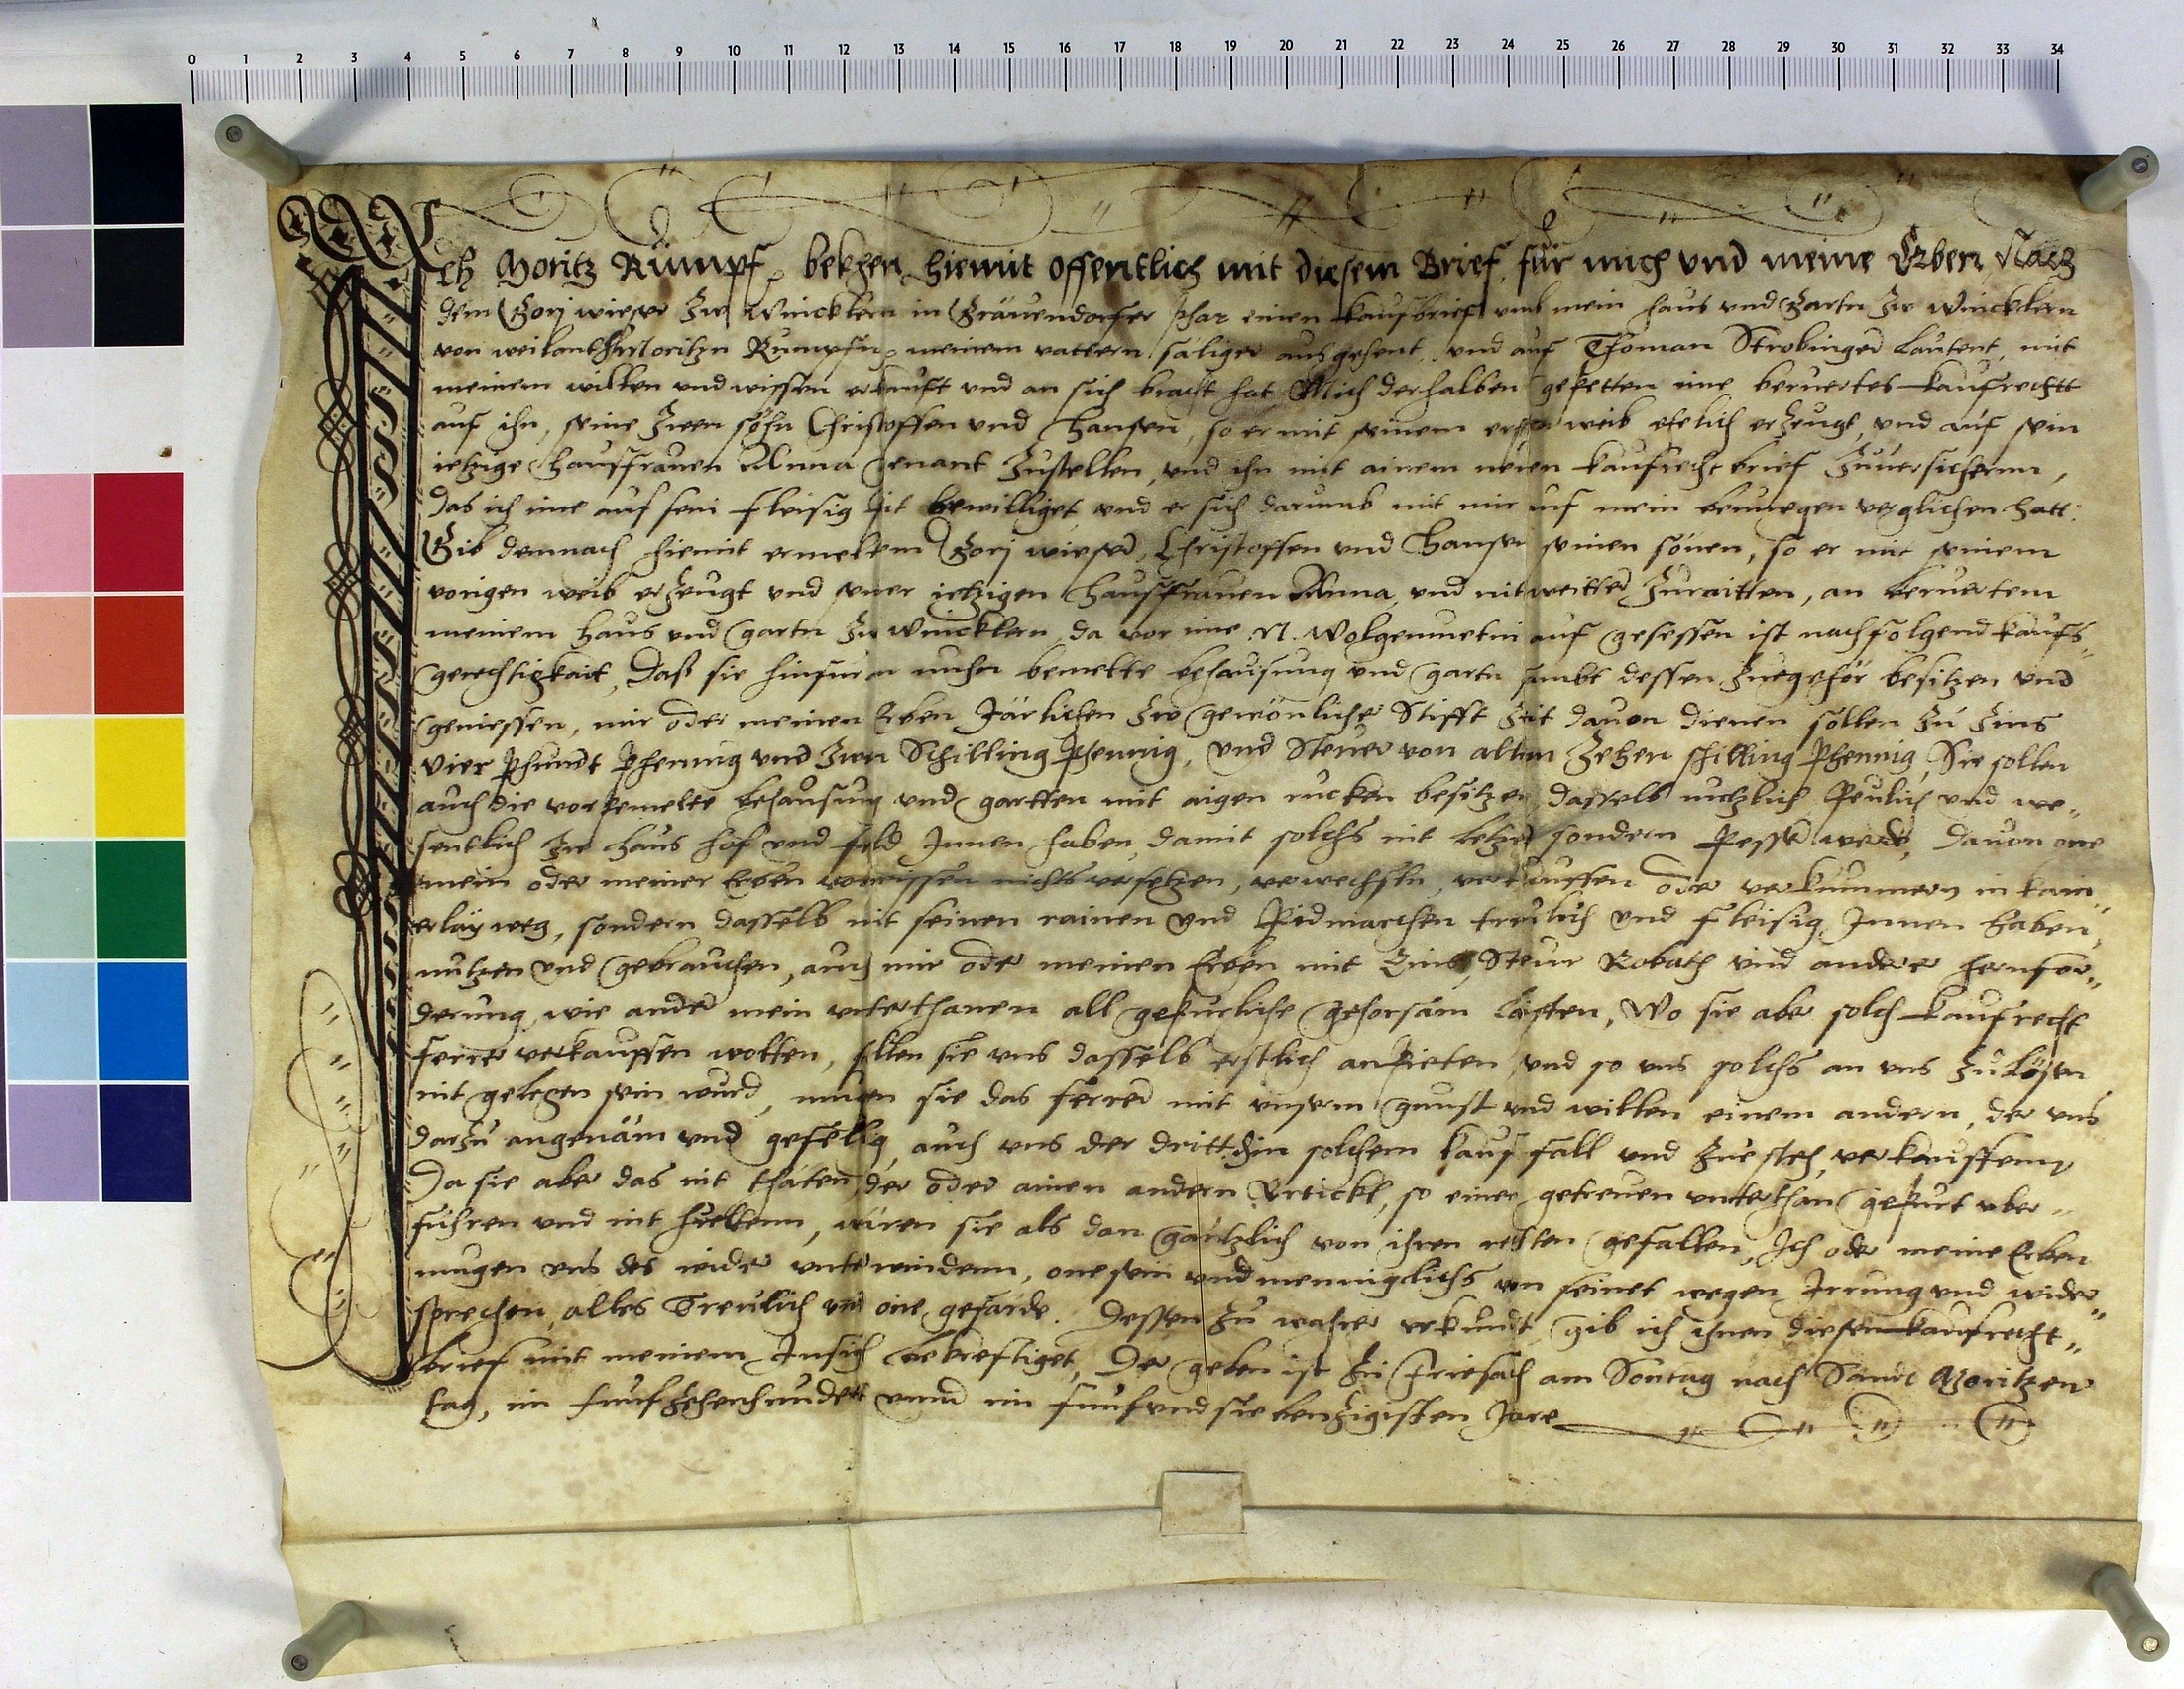 0 1 2 3 4 5 6 7 8 9 10 11 12 13 14 15 16 17 18 19 20 21 22 23 24 25 26 27 28 29 30 31 32 33 34
Ich Moritz Rumpf bekhen hiemit offentlich mit diesem Brief, für mich und meine Erben, Nach
dem Gorj wieser zw Wincklern in Grauendorfer phar einen kaufbrief umb mein haus und Gartn zw Wincklern
von weilant Hr Moritzn Rumpfn meinem vattern säliger ausgesent, und auf Thoman Strobinger lautent, mit
meinem willen und wissen erkauft und an sich bracht hat Mich derhalben gepetten ime beruertes kaufrechtt
auf ihn, seine zwen söhn Christoffen und Hansen, so er mit seinem ersten weib ehelich erzeugt, und auf sein
ietzige hausfrauen Anna genant zustellen, und ihn mit ainem neuen kaufrecht brief zuuersichernn,
Das ich ime auf sein fleisig bit bewilliget und er sich darumb mit mir auf mein benuegen verglichen hatt.
Gib demnach hiemit ermeltem Gorj wieser, Christoffen und Hansen seinen sönen, so er mit seinem
vorigen weib erzeugt und seiner ietzigen hausfrauen Anna, und nit weitter zuraitten, an beruertem
meinem haus und gartn zw Wincklern, da vor ime N. Wolgemuetin auf gesessen ist nachfolgend kaufs„
gerechtigkait, Daß sie hinfüran nuhn bemelte behausung und gartn sambt dessen zuegehör besitzen und
geniessen, mir oder meinen Erben Järlichen zw gewönlicher Stifft zeit dauon dienen sollen zu zins
Vier Phundt Phening und zwen Schilling Phennig, und Steuer von alltem zehen schilling Phennig, Sie sollen
auch die vorgemelte behausung und gartten mit aigen rucken besitzen, dasselb nutzlich Peulich und we„
sentlich zw haus hof und feld Innen haben, damit solchs nit letzer sondern Pesser werde, Dauon one
mein oder meiner Erben vorwissen nichts versetzen, verwechsln, verkauffen oder verkummern in kain„
erläy weg, sondern dasselb mit seinen rainen und Pidmarchen treulich und fleisig Innen haben,
nutzen und gebrauchen, auch mir oder meinen Erben mit Zins, Steur Robath und anderer hernfor„
derung, wie ander mein unterthanen all gepurliche gehorsam laisten, Wo sie aber solch kaufrecht
ferrer verkauffen wolten, sollen sie uns dasselb erstlich anpieten und so uns solchs an uns zu lösen
nit gelegen sein wurd, mugen sie das ferrer mit unserm gunst und willen einem andern, der uns
darzu angenäm und gefellig, auch uns der dritt d in solchem kauf fall und zuesteh, verkauffenn
Da sie aber das nit thäten, der oder ainen andern Artickl, so einer getreuen unterthan gepurt uber„
fuhren und nit hieltenn, wären sie als dan gäntzlich von ihren rechten gefallen, Ich oder meine Erben
mugen uns des wider unterwindenn, one sein und menniglichs von seinet wegen Irrung und wider„
sprechen, alles Treulich und one gefärde. Dessen zu wahrer urkundt, gib ich ihnen diesen kaufrecht„
brief mit meinem Insich bekrefftiget, Der geben ist zu Friesach am Sontag nach Sandt Moritzen
tag, im funfzehenhundert unnd im funfundsiebenzigisten Jare